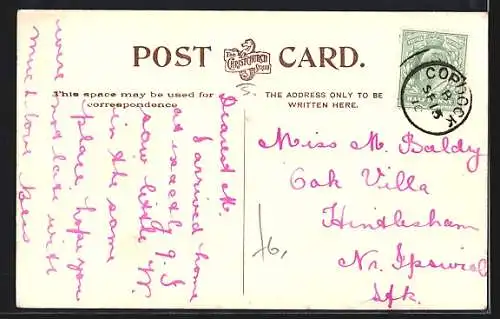 POST CARD.
The
CHRISTCHURCH
This space may be used for
correspondence
THE ADDRESS ONLY TO BE
WRITTEN HERE.
COPDOCK
SP 3
Dearest M.
I arrived home
at exactly 9. I
saw little
in the same
place, hope you
were not late with
much love
Miss M. Baldry
Oak Villa
Hintlesham
Nr. Ipswich
Sfk.